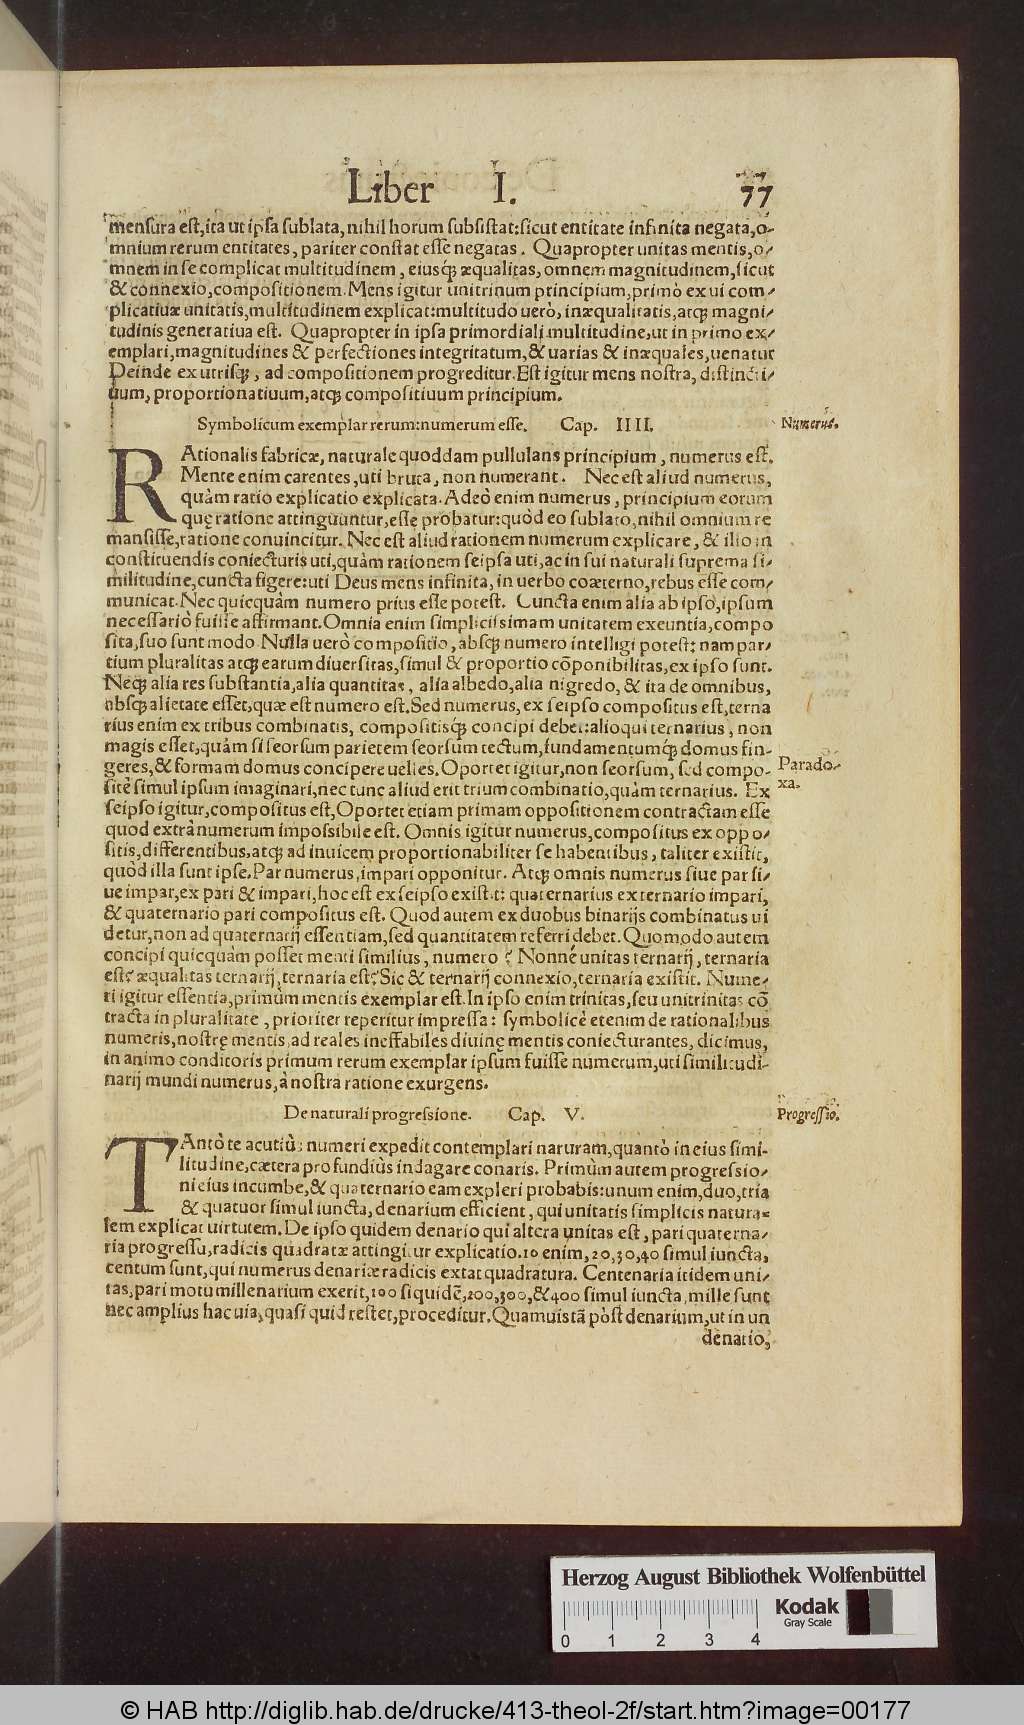 Liber I. 77
mensura est, ita ut ipsa sublata, nihil horum subsistat: sicut entitate infinita negata, o-
mnium rerum entitates, pariter constat esse negatas. Quapropter unitas mentis, o-
mnem in se complicat multitudinem, eiusq́; æqualitas, omnem magnitudinem, sicut
& connexio, compositionem. Mens igitur unitrinum principium, primò ex ui com-
plicatiuæ unitatis, multitudinem explicat: multitudo uerò, inæqualitatis, atq; magni-
tudinis generatiua est. Quapropter in ipsa primordiali multitudine, ut in primo ex-
emplari, magnitudines & perfectiones integritatum, & uarias & inæquales, uenatur
Deinde ex utrisq;, ad compositionem progreditur. Est igitur mens nostra, distincti-
uum, proportionatiuum, atq; compositiuum principium.
Symbolicum exemplar rerum: numerum esse. Cap. IIII.
Numerus.
RAtionalis fabricæ, naturale quoddam pullulans principium, numerus est.
Mente enim carentes, uti bruta, non numerant. Nec est aliud numerus,
quàm ratio explicatio explicata. Adeò enim numerus, principium eorum
quę ratione attinguuntur, esse probatur: quòd eo sublato, nihil omnium re
mansisse, ratione conuincitur. Nec est aliud rationem numerum explicare, & illo in
constituendis coniecturis uti, quàm rationem seipsa uti, ac in sui naturali suprema si-
militudine, cuncta figere: uti Deus mens infinita, in uerbo coæterno, rebus esse com-
municat. Nec quicquàm numero prius esse potest. Cuncta enim alia ab ipso, ipsum
necessariò fuisse affirmant. Omnia enim simplicissimam unitatem exeuntia, compo
sita, suo sunt modo Nulla uerò compositio, absq; numero intelligi potest: nam par-
tium pluralitas atq; earum diuersitas, simul & proportio cõponibilitas, ex ipso sunt.
Neq; alia res substantia, alia quantitas, alia albedo, alia nigredo, & ita de omnibus,
absq; alietate esset, quæ est numero est. Sed numerus, ex seipso compositus est, terna
rius enim ex tribus combinatis, compositisq́; concipi debet: alioqui ternarius, non
magis esset, quàm si seorsum parietem seorsum tectum, fundamentumq́; domus fin-
geres, & formam domus concipere uelles. Oportet igitur, non seorsum, sed compo-
sitè simul ipsum imaginari, nec tunc aliud erit trium combinatio, quàm ternarius. Ex
Parado-
xa.
seipso igitur, compositus est, Oportet etiam primam oppositionem contractam esse
quod extrà numerum impossibile est. Omnis igitur numerus, compositus ex oppo-
sitis, differentibus, atq; ad inuicem proportionabiliter se habentibus, taliter existit,
quòd illa sunt ipse. Par numerus, impari opponitur. Atq; omnis numerus siue par si-
ue impar, ex pari & impari, hoc est ex seipso existit: quaternarius ex ternario impari,
& quaternario pari compositus est. Quod autem ex duobus binarijs combinatus ui
detur, non ad quaternarij essentiam, sed quantitatem referri debet. Quomodo autem
concipi quicquàm posset menti similius, numero? Nonne unitas ternarij, ternaria
est? æqualitas ternarij, ternaria est? Sic & ternarij connexio, ternaria existit. Nume-
ri igitur essentia, primùm mentis exemplar est. In ipso enim trinitas, seu unitrinitas cõ
tracta in pluralitate, prioriter reperitur impressa: symbolicè etenim de rationalibus
numeris, nostrę mentis, ad reales ineffabiles diuinę mentis coniecturantes, dicimus,
in animo conditoris primum rerum exemplar ipsum fuisse numerum, uti similitudi-
narij mundi numerus, à nostra ratione exurgens.
De naturali progressione. Cap. V.
Progressio.
TAntò te acutiùs numeri expedit contemplari naturam, quantò in eius simi-
litudine, cætera profundiùs indagare conaris. Primùm autem progressio-
ni eius incumbe, & quaternario eam expleri probabis: unum enim, duo, tria
& quatuor simul iuncta, denarium efficient, qui unitatis simplicis natura-
lem explicat uirtutem. De ipso quidem denario qui altera unitas est, pari quaterna-
ria progressu, radicis quadratæ attingitur explicatio. 10 enim, 20, 30, 40 simul iuncta,
centum sunt, qui numerus denariæ radicis extat quadratura. Centenaria itidem uni-
tas, pari motu millenarium exerit, 100 siquidẽ, 200, 300, & 400 simul iuncta, mille sunt
nec amplius hac uia, quasi quid restet, proceditur. Quamuis tã pòst denarium, ut in un
denario,
Herzog August Bibliothek Wolfenbüttel
Kodak
Gray Scale
0 1 2 3 4
© HAB http://diglib.hab.de/drucke/413-theol-2f/start.htm?image=00177